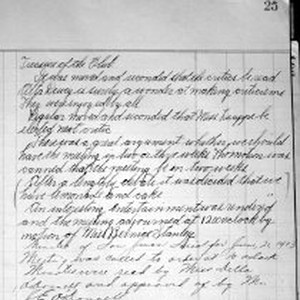 25
Treasurer of the Club.
It was moved and seconded that the critics be read
is surely a wonder at making criticisms
They were enjoyed by all
moved and seconded that Miss be
elected next critic
There was a great argument whether we should
have the meeting in two or three weeks The motion was
carried that the meeting be in two weeks
After a lengthy debate it was decided that we
have lemonade and cake
An interesting entertainment was
and the meeting adjourned at 12 o'clock by
motion of Miss Bernice Stanley
of for June
Meeting was called to order at 8 o'clock
Minutes were read by Miss Della
and approved of by Mr